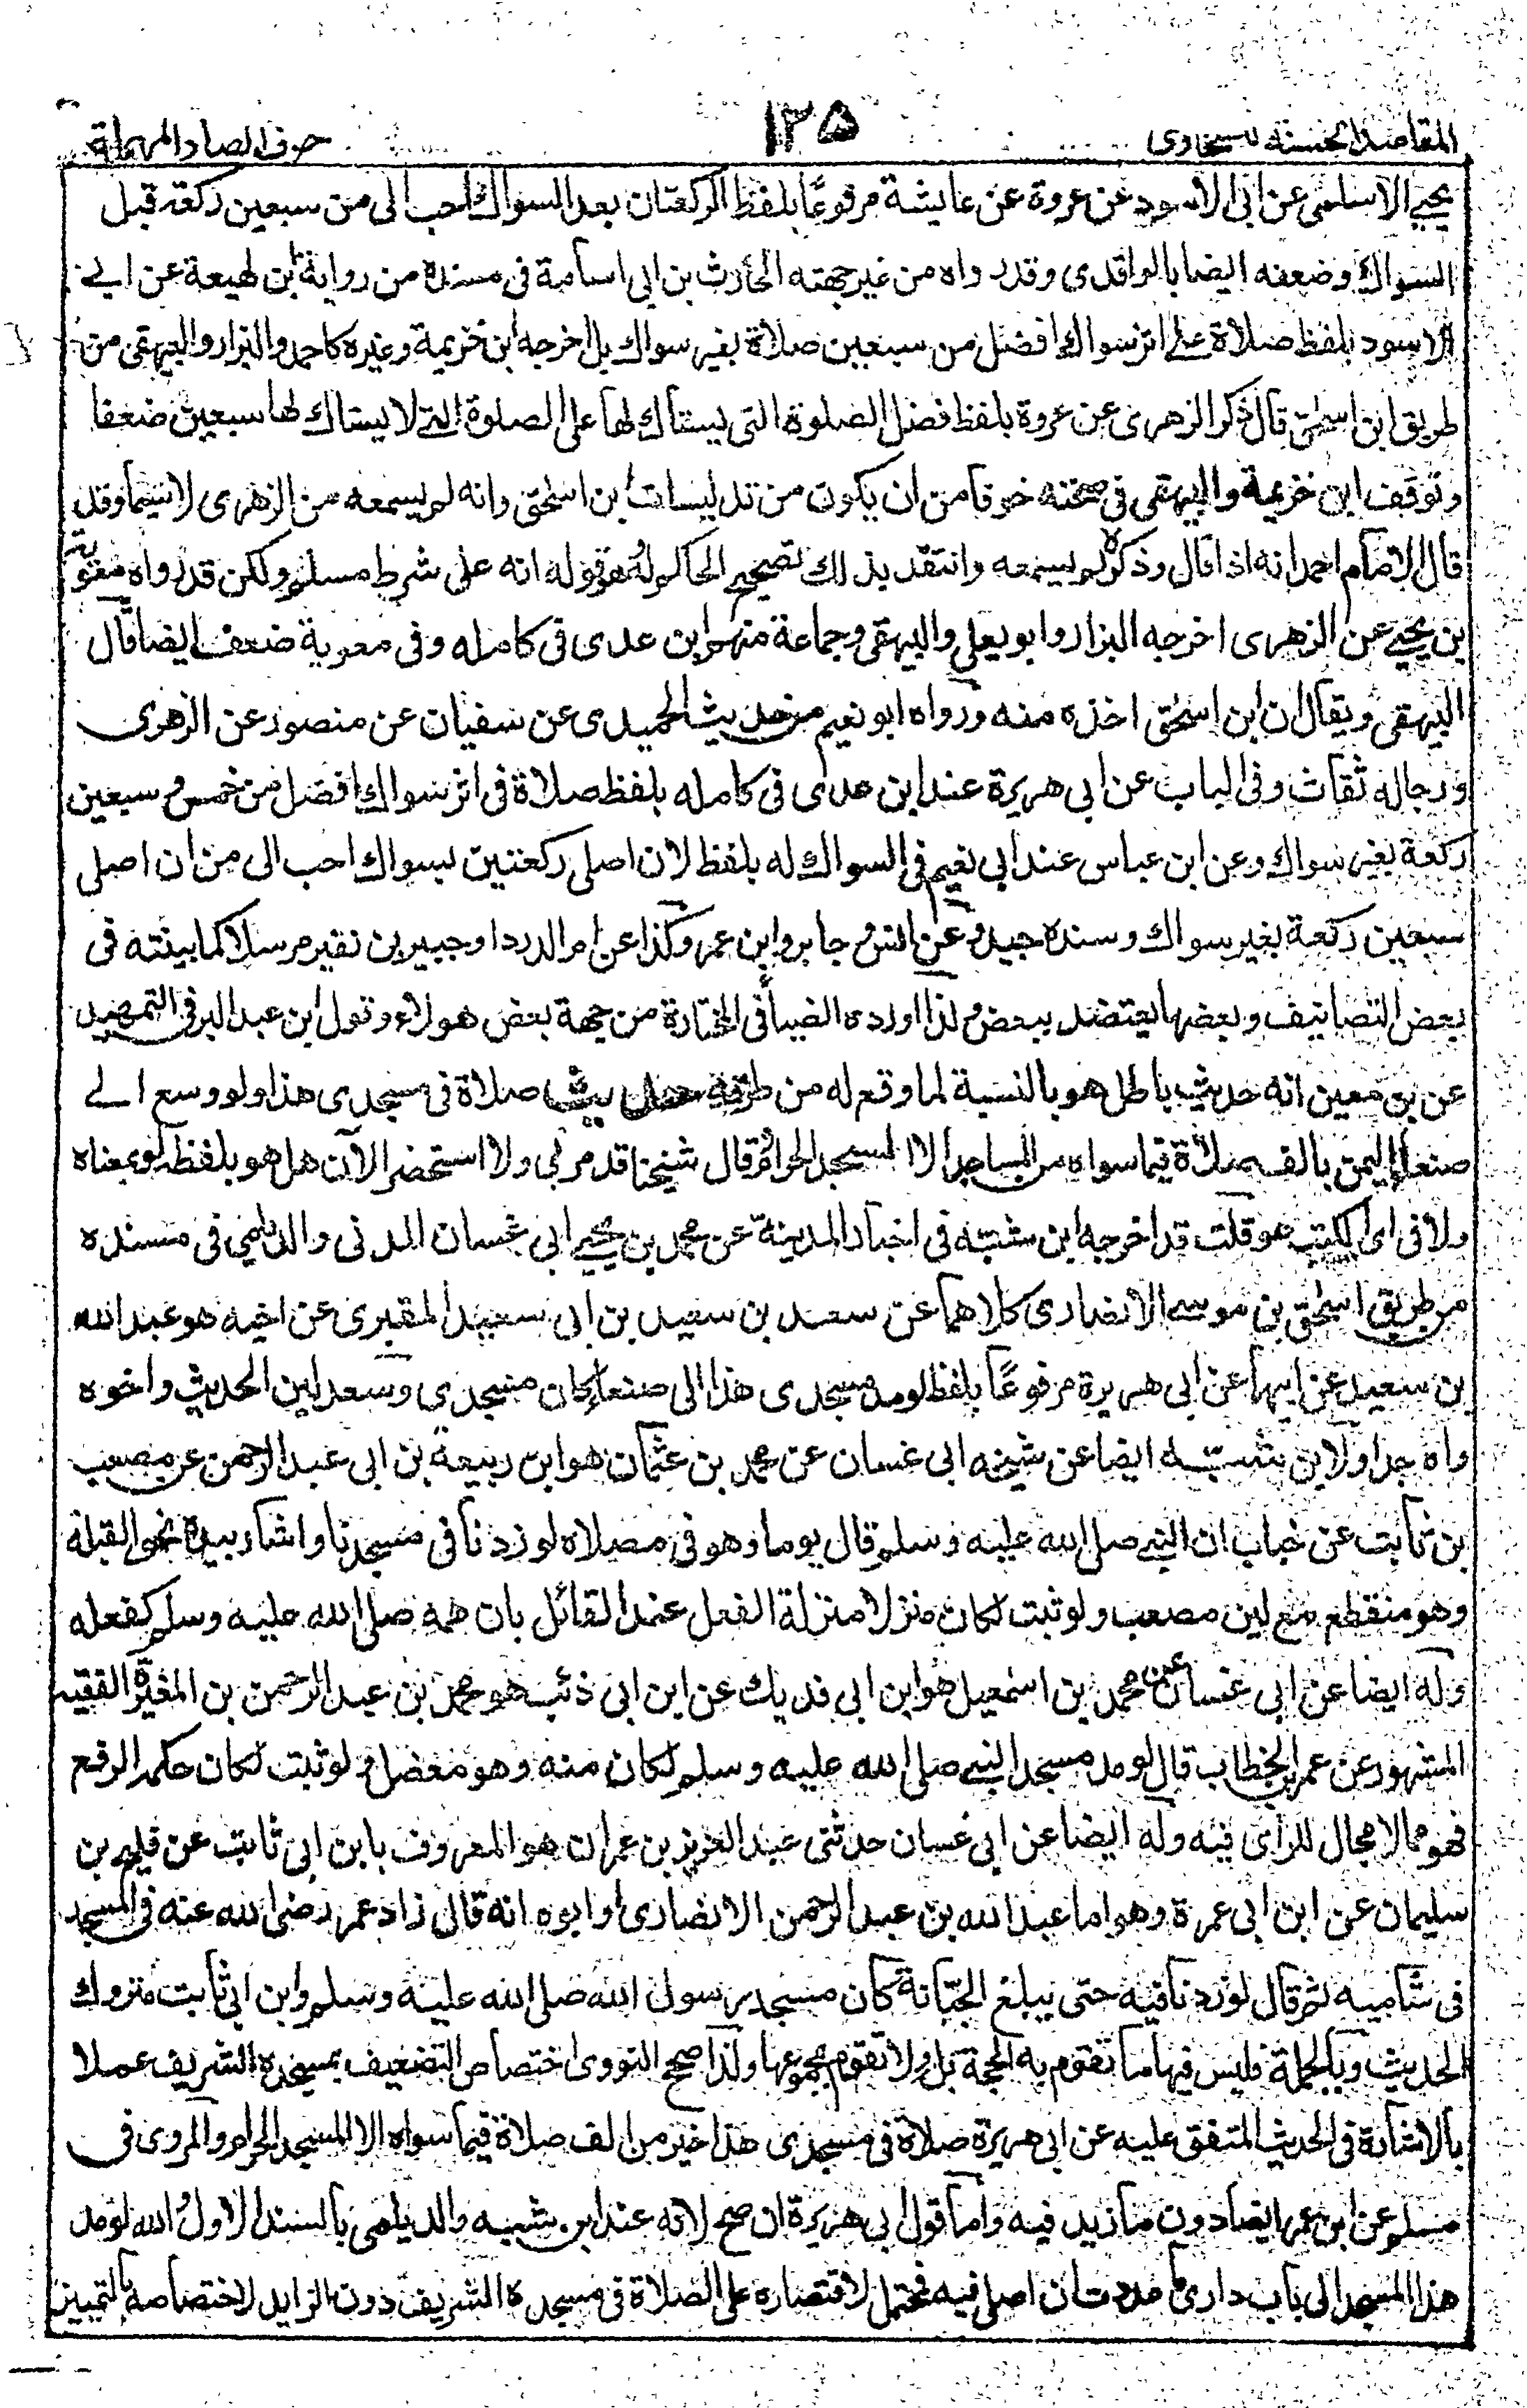 المقاصد الحسنة للسخاوى
١٢٥
حرف الصاد المهملة
يحيى الاسلمى عن ابى الاسود عن عروة عن عايشة مرفوعًا بلفظ الركعتان بعد السواك احب الى من سبعين ركعة قبل
السواك وضعفه ايضا بالواقدى وقد رواه من غير جهته الحارث بن ابى اسامة فى مسنده من رواية ابن لهيعة عن ابى
الاسود بلفظ صلاة على اثر سواك افضل من سبعين صلاة بغير سواك بل اخرجه ابن خزيمة وغيره كاحمد والبزار والبيهقى من
طريق ابن اسحٰق قال ذكر الزهرى عن عروة بلفظ فضل الصلوة التى يستاك لها على الصلوة التى لا يستاك لها سبعين ضعفا
وتوقف ابن خزيمة والبيهقى فى صحته خوفا من ان يكون من تدليسات ابن اسحٰق وانه لم يسمعه من الزهرى لاسيما وقد
قال الامام احمد انه اذا قال وذكره لم يسمعه وانتقد بذلك تصحيح الحاكم له وقوله انه على شرط مسلم ولكن قد رواه معوية
بن يحيى عن الزهرى اخرجه البزار وابو يعلى والبيهقى وجماعة منهم ابن عدى فى كامله وفى معوية ضعف ايضا قال
البيهقى ويقال ان ابن اسحٰق اخذه منه ورواه ابو نعيم من حديث الحميدى عن سفيان عن منصور عن الزهرى
ورجاله ثقات وفى الباب عن ابى هريرة عند ابن عدى فى كامله بلفظ صلاة فى اثر سواك افضل من خمس و سبعين
ركعة بغير سواك وعن ابن عباس عند ابى نعيم فى السواك له بلفظ لان اصلى ركعتين بسواك احب الى من ان اصلى
سبعين ركعة بغير سواك وسنده جيد وعن انس و جابر وابن عمر وكذا عن ام الدردا وجبير بن نفير مرسلا كما بينته فى
بعض التصانيف وبعضها يعتضد ببعض و لذا اورده الضيا فى المختارة من جهة بعض هولاء وقول ابن عبد البر فى التمهيد
عن بن معين انه حديث باطل هو بالنسبة لما وقع له من طرقه حديث صلاة فى مسجدى هذا ولو وسع الى
صنعاء اليمن بالف صلاة فيما سواه من المساجد الا المسجد الحرام قال شيخنا قد مر لى ولا استحضر الآن هل هو بلفظه او بمعناه
ولا فى اى الكتب هو قلت قد اخرجه ابن شبة فى اخبار المدينة عن محمد بن يحيى ابى غسان المدنى والديلمى فى مسنده
من طريق اسحٰق بن موسى الانصارى كلاهما عن سعد بن سعيد بن ابى سعيد المقبرى عن اخيه هو عبد الله
بن سعيد عن ابيهما عن ابى هريرة مرفوعًا بلفظ لو مد مسجدى هذا الى صنعاء كان مسجدى وسعد لين الحديث واخوه
واه جدا ولابن شبه ايضا عن شيخه ابى غسان عن محمد بن عثمان هو ابن ربيعة بن ابى عبد الرحمن عن مصعب
بن ثابت عن خباب ان النبى صلى الله عليه وسلم قال يوما وهو فى مصلاه لو زدنا فى مسجدنا واشار بيده نحو القبلة
وهو منقطع مع لين مصعب ولو ثبت لكان منزلا منزلة الفعل عند القائل بان همه صلى الله عليه وسلم كفعله
وله ايضا عن ابى غسان عن محمد بن اسمعيل هو ابن ابى فديك عن ابن ابى ذئب هو محمد بن عبد الرحمن بن المغيرة الفقيه
المشهور عن عمر بن الخطاب قال لو مد مسجد النبى صلى الله عليه وسلم لكان منه وهو معضل و لو ثبت لكان حكمه الرفع
فهو مما لا مجال للراى فيه وله ايضا عن ابى غسان حدثنى عبد العزيز بن عمران هو المعروف بابن ابى ثابت عن فليح بن
سليمان عن ابن ابى عمرة وهو اما عبد الله بن عبد الرحمن الانصارى او ابوه انه قال زاد عمر رضى الله عنه فى المسجد
فى شاميه ثم قال لو زدنا فيه حتى يبلغ الجبانة كان مسجد رسول الله صلى الله عليه وسلم وابن ابى ثابت متروك
الحديث وبالجملة فليس فيها ما تقوم به الحجة بل ولا تقوم بمجموعها ولذا صحح النووى اختصاص التضعيف بمسجده الشريف عملا
بالاشارة فى الحديث المتفق عليه عن ابى هريرة صلاة فى مسجدى هذا خير من الف صلاة فيما سواه الا المسجد الحرام والمروى فى
مسلم عن ابن عمر ايضا دون ما زيد فيه واما قول ابى هريرة ان صح لانه عند ابن شبه والديلمى بالسند الاول و الله لو مد
هذا المسجد الى باب دارى ما عدوت ان اصلى فيه فمحتمل لاقتصاره على الصلاة فى مسجده الشريف دون الزايد لاختصاصه بالتمييز